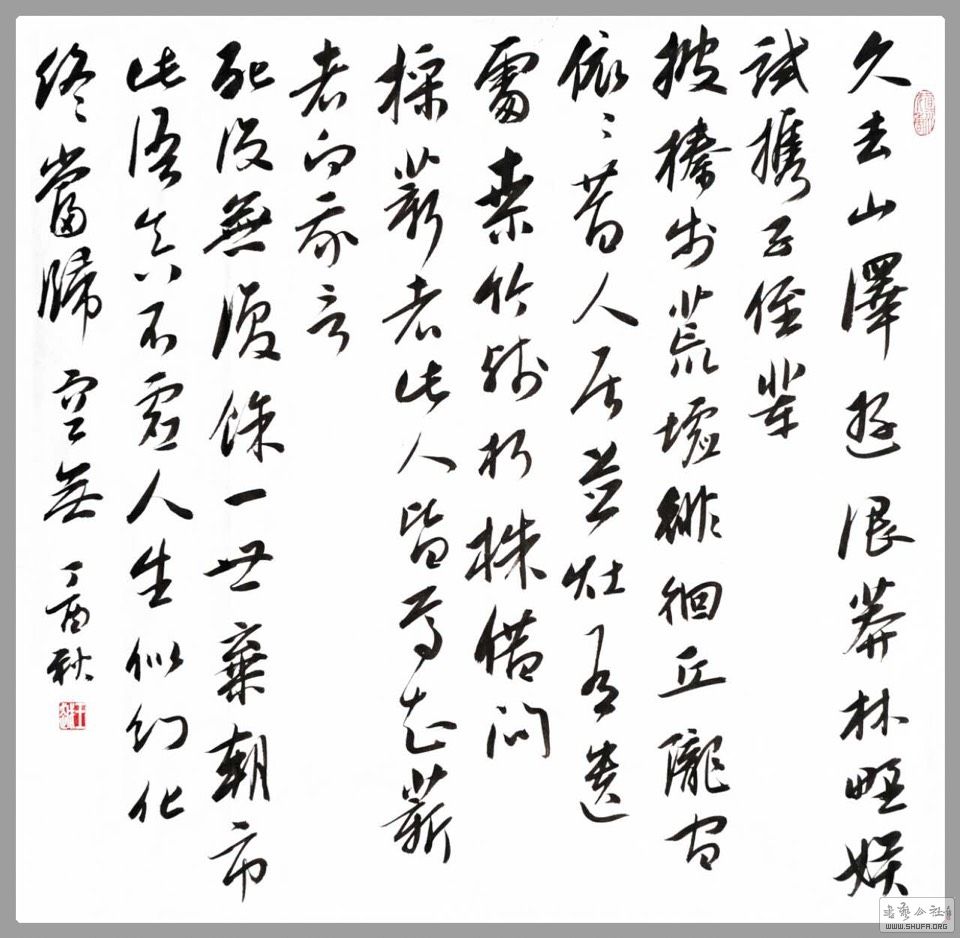 久去山澤遊浪莽林野娛
試攜子侄輩
披榛步荒墟徘徊丘隴間
依〻昔人居井灶有遺
處桑竹殘朽株借問
採薪者此人皆焉如薪
者向我言
死沒無復餘一世棄朝市
此語真不虛人生似幻化
終當歸空無 丁酉秋
書藝公社
WWW.SHUFA.ORG